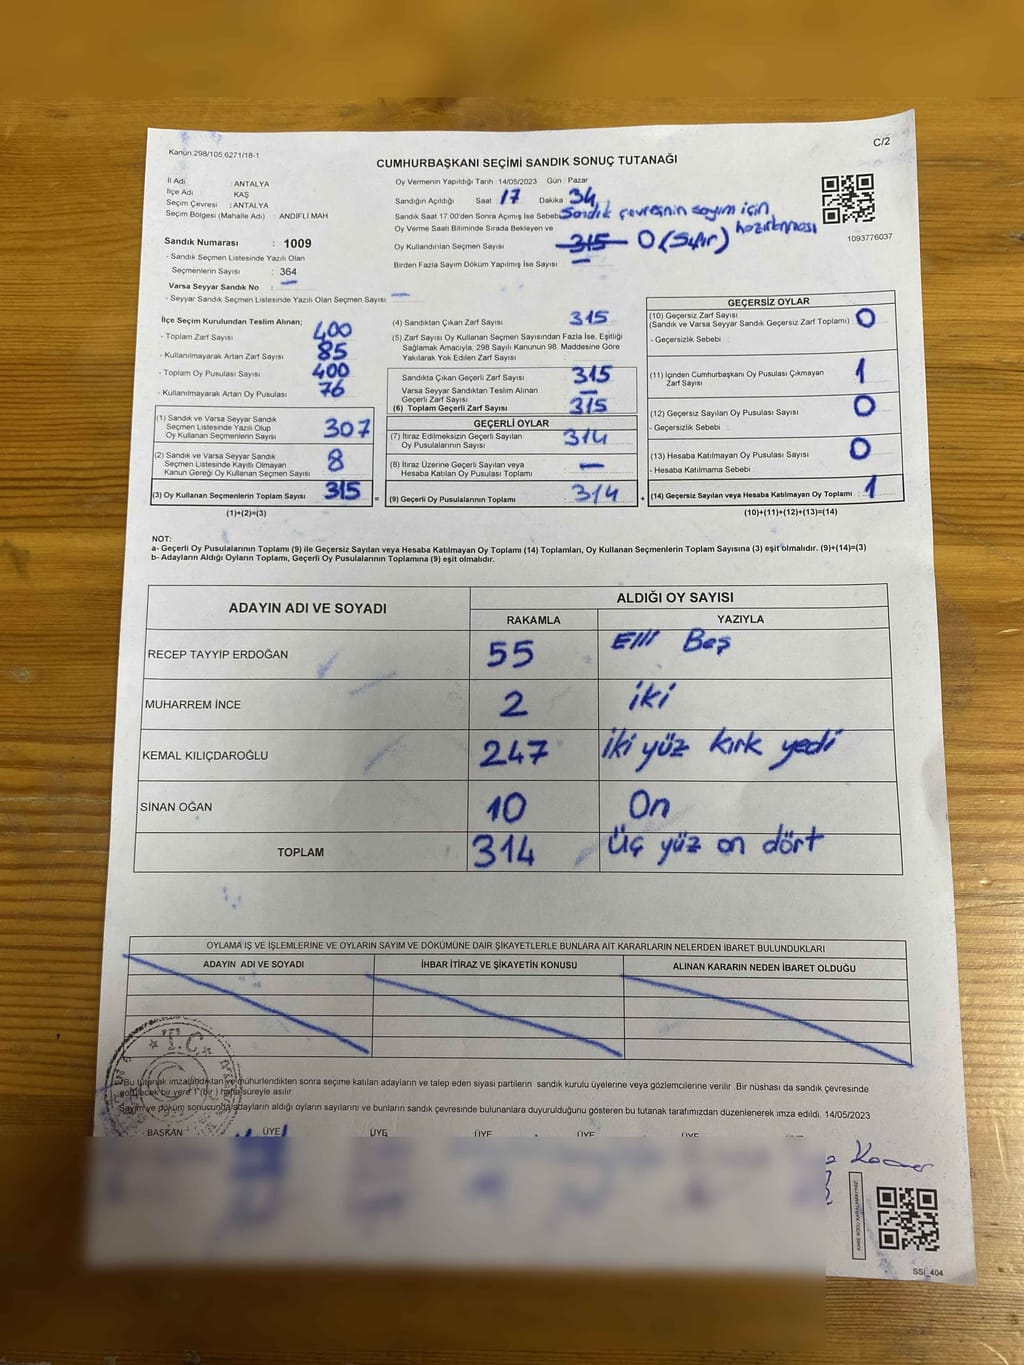 Kanun.298/105,6271/18-1
C/2
CUMHURBAŞKANI SEÇİMİ SANDIK SONUÇ TUTANAĞI
İl Adı : ANTALYA
İlçe Adı : KAŞ
Seçim Çevresi : ANTALYA
Seçim Bölgesi (Mahalle Adı) : ANDİFLİ MAH
Sandık Numarası : 1009
- Sandık Seçmen Listesinde Yazılı Olan
Seçmenlerin Sayısı : 364
Varsa Seyyar Sandık No : —
- Seyyar Sandık Seçmen Listesinde Yazılı Olan Seçmen Sayısı: —
Oy Vermenin Yapıldığı Tarih :14/05/2023 Gün : Pazar
Sandığın Açıldığı Saat 17 Dakika 34
Sandık Saat 17:00'den Sonra Açımış İse Sebebi Sandık çevresinin sayım için hazırlanması
Oy Verme Saati Bitiminde Sırada Bekleyen ve
Oy Kullandırılan Seçmen Sayısı 315 0 (Sıfır)
Birden Fazla Sayım Döküm Yapılmış İse Sayısı : —
1093776037
İlçe Seçim Kurulundan Teslim Alınan;
- Toplam Zarf Sayısı : 400
- Kullanılmayarak Artan Zarf Sayısı : 85
- Toplam Oy Pusulası Sayısı : 400
- Kullanılmayarak Artan Oy Pusulası : 76
(1) Sandık ve Varsa Seyyar Sandık
Seçmen Listesinde Yazılı Olup
Oy Kullanan Seçmenlerin Sayısı : 307
(2) Sandık ve Varsa Seyyar Sandık
Seçmen Listesinde Kayıtlı Olmayan
Kanun Gereği Oy Kullanan Seçmen Sayısı : 8
(3) Oy Kullanan Seçmenlerin Toplam Sayısı : 315 =
(1)+(2)=(3)
(4) Sandıktan Çıkan Zarf Sayısı : 315
(5) Zarf Sayısı Oy Kullanan Seçmen Sayısından Fazla İse, Eşitliği
Sağlamak Amacıyla, 298 Sayılı Kanunun 98. Maddesine Göre
Yakılarak Yok Edilen Zarf Sayısı :
Sandıkta Çıkan Geçerli Zarf Sayısı : 315
Varsa Seyyar Sandıktan Teslim Alınan
Geçerli Zarf Sayısı : —
(6) Toplam Geçerli Zarf Sayısı : 315
GEÇERLİ OYLAR
(7) İtiraz Edilmeksizin Geçerli Sayılan
Oy Pusulalarının Sayısı : 314
(8) İtiraz Üzerine Geçerli Sayılan veya
Hesaba Katılan Oy Pusulası Toplamı : —
(9) Geçerli Oy Pusulalarının Toplamı : 314 +
GEÇERSİZ OYLAR
(10) Geçersiz Zarf Sayısı
(Sandık ve Varsa Seyyar Sandık Geçersiz Zarf Toplamı) : 0
- Geçersizlik Sebebi :
(11) İçinden Cumhurbaşkanı Oy Pusulası Çıkmayan
Zarf Sayısı : 1
(12) Geçersiz Sayılan Oy Pusulası Sayısı : 0
- Geçersizlik Sebebi :
(13) Hesaba Katılmayan Oy Pusulası Sayısı : 0
- Hesaba Katılmama Sebebi :
(14) Geçersiz Sayılan veya Hesaba Katılmayan Oy Toplamı : 1
(10)+(11)+(12)+(13)=(14)
NOT:
a- Geçerli Oy Pusulalarının Toplamı (9) ile Geçersiz Sayılan veya Hesaba Katılmayan Oy Toplamı (14) Toplamları, Oy Kullanan Seçmenlerin Toplam Sayısına (3) eşit olmalıdır. (9)+(14)=(3)
b- Adayların Aldığı Oyların Toplamı, Geçerli Oy Pusulalarının Toplamına (9) eşit olmalıdır.
ADAYIN ADI VE SOYADI
ALDIĞI OY SAYISI
RAKAMLA YAZIYLA
RECEP TAYYİP ERDOĞAN 55 Elli Beş
MUHARREM İNCE 2 iki
KEMAL KILIÇDAROĞLU 247 iki yüz kırk yedi
SİNAN OĞAN 10 On
TOPLAM 314 üç yüz on dört
OYLAMA İŞ VE İŞLEMLERİNE VE OYLARIN SAYIM VE DÖKÜMÜNE DAİR ŞİKAYETLERLE BUNLARA AİT KARARLARIN NELERDEN İBARET BULUNDUKLARI
ADAYIN ADI VE SOYADI İHBAR İTİRAZ VE ŞİKAYETİN KONUSU ALINAN KARARIN NEDEN İBARET OLDUĞU
T.C.
Bu tutanak imzalandıktan ve mühürlendikten sonra seçime katılan adayların ve talep eden siyasi partilerin sandık kurulu üyelerine veya gözlemcilerine verilir. Bir nüshası da sandık çevresinde
görülecek bir yere 1 (bir) hafta süreyle asılır.
Sayım ve döküm sonucunda adayların aldığı oyların sayılarını ve bunların sandık çevresinde bulunanlara duyurulduğunu gösteren bu tutanak tarafımızdan düzenlenerek imza edildi. 14/05/2023
BAŞKAN ÜYE ÜYE ÜYE ÜYE ÜYE
KARE KODU KARALAMAYINIZ!
SSI_404